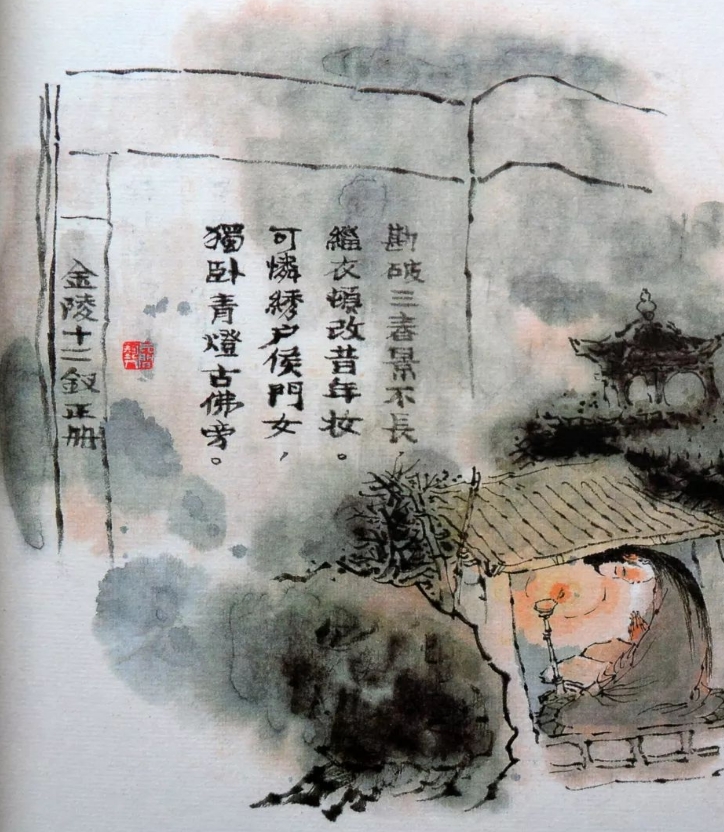 勘破三春景不長，
緇衣頓改昔年妆。
可憐綉户侯門女，
獨卧青燈古佛旁。
金陵十二釵正册